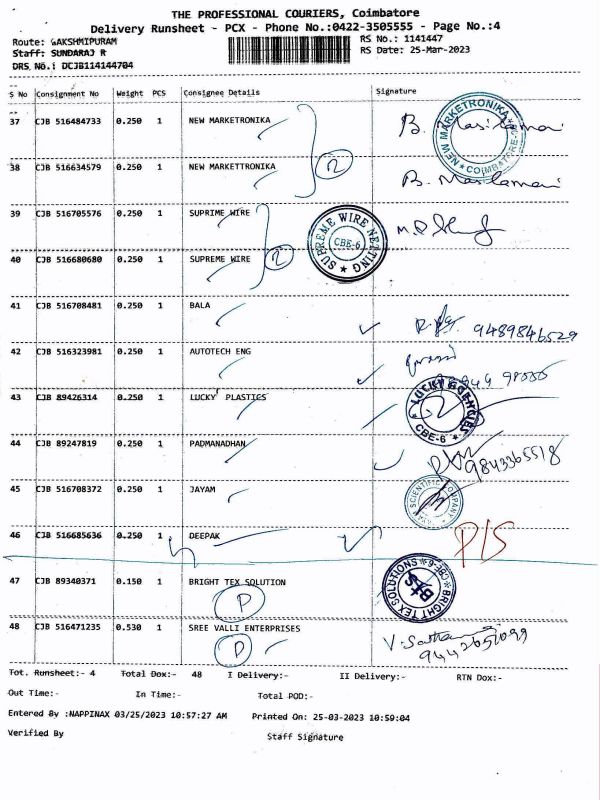 THE PROFESSIONAL COURIERS, Coimbatore
Delivery Runsheet - PCX - Phone No.:0422-3505555 - Page No.:4
Route: GAKSHMIPURAM RS No.: 1141447
Staff: SUNDARAJ R RS Date: 25-Mar-2023
DRS No.: DCJB114144704
S No Consignment No Weight PCS Consignee Details Signature
37 CJB 516484733 0.250 1 NEW MARKETRONIKA B. Masilamani
NEW MARKETRONIKA COIMBATORE
38 CJB 516634579 0.250 1 NEW MARKETTRONIKA B. Masilamani
2
39 CJB 516705576 0.250 1 SUPRIME WIRE
SUPREME WIRE NETTING CBE-6
40 CJB 516680680 0.250 1 SUPREME WIRE
2
41 CJB 516708481 0.250 1 BALA 9489846529
42 CJB 516323981 0.250 1 AUTOTECH ENG
43 CJB 89426314 0.250 1 LUCKY PLASTICS
LUCKY AGENCIES CBE-6
44 CJB 89247819 0.250 1 PADMANADHAN 9843365518
45 CJB 516708372 0.250 1 JAYAM
SCIENTIFIC COMPANY
46 CJB 516685636 0.250 1 DEEPAK P/S
47 CJB 89340371 0.150 1 BRIGHT TEX SOLUTION
P
BRIGHT TEX SOLUTIONS CBE-6
48 CJB 516471235 0.530 1 SREE VALLI ENTERPRISES
P
Tot. Runsheet:- 4 Total Dox:- 48 I Delivery:- II Delivery:- RTN Dox:-
Out Time:- In Time:- Total POD:-
Entered By :NAPPINAX 03/25/2023 10:57:27 AM Printed On: 25-03-2023 10:59:04
Verified By Staff Signature